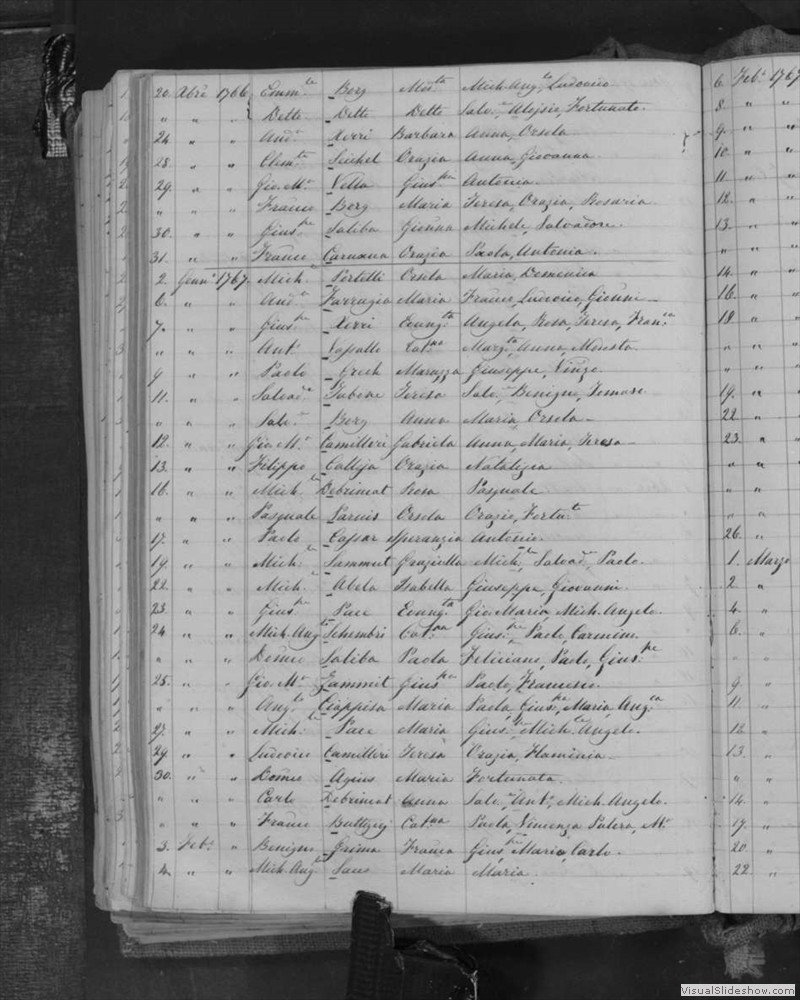 20. Xbre 1766 Emm.le Borg Mar.ta Mich. Ang.lo, Ludovico
" " " Detto Detto Detto Salv.e, Aloisio, Fortunato.
24. " " And.a Xerri Barbara Anna, Orsola
28. " " Clem.te Seichel Orazia Anna, Giovanna.
29. " " Gio. M.a Vella Gius.ppa Antonia.
" " " Franco Borg Maria Teresa, Orazia, Rosaria
30. " " Gius.pe Saliba Gionna Michele, Salvadore.
31. " " Franco Caruana Orazia Paola, Antonia.
2. Genn.o 1767. Mich. Portelli Orsola Maria, Domenica
6. " " And.a Farrugia Maria Franco, Ludovico, Gionni
7. " " Gius.pe Xerri Evang.ta Angela, Rosa, Teresa, Fran.ca
" " " Ant.o Cat.na Marg.ta, Anna, Modesta
9. " " Paolo Grech Maruzza Giuseppe, Vinzo.
11. " " Salvad.e Tabone Teresa Salv.e, Benigno, Tomaso.
" " " Salv.e Borg Anna Maria, Orsola
12. " " Gio. M.a Camilleri Gabriela Anna, Maria, Teresa
13. " " Filippo Calleja Orazia Natalizia
16. " " Mich.le Debrimat Rosa Pasquale
" " " Pasquale Parnis Orsola Orazio, Fortu.to
17. " " Paolo Caffar Speranzia Antonio.
19. " " Mich.le Sammut Graziella Mich.le, Salvad.e, Paolo.
22. " " Mich. Abela Isabella Giuseppe, Giovanni.
23. " " Gius.pe Pace Evang.ta Gio. Maria, Mich. Angelo.
24. " " Mich. Ang.lo Schembri Cat.na Gius.pe, Paolo, Carmine.
" " " Domco Saliba Paola Feliciano, Paolo, Gius.pe
25. " " Gio. M.a Zammit Gius.pa Paolo, Francesco.
" " " Ang.lo Ciappisa Maria Paola, Gius.pa, Maria, Ang.ca
27. " " Mich.le Pace Maria Gius.pe, Mich.le Angelo.
29. " " Ludovico Camilleri Teresa Orazia, Flaminia.
30. " " Domco Agius Maria Fortunata.
" " " Carlo Debrimat Anna Salv.e, Ant.o, Mich. Angelo.
" " " Franco Buttigieg Cat.na Paola, Vincenza M.a
3. Feb.o " Benigno Grima Franca Gius.ppe, Mario, Carlo.
4. " " Mich. Ang.lo Saus Maria Maria.
6. Feb.o 1767
8. " "
9. " "
10. " "
11. " "
12. " "
13. " "
" "
14. " "
16. " "
18 "
" "
" "
19. "
22 "
23. "
" "
" "
" "
26. "
1. Marzo
2 "
4 "
6. "
" "
9. "
11. "
12. "
13. "
" "
14. "
17. "
20. "
22. "
VisualSlideshow.com